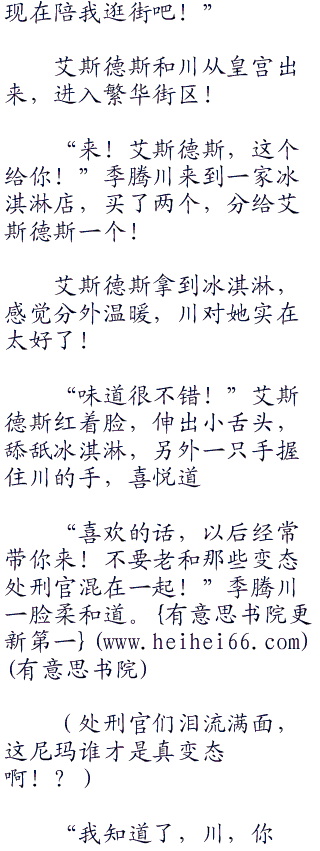 现在陪我逛街吧！”
艾斯德斯和川从皇宫出
来，进入繁华街区！
“来！艾斯德斯，这个
给你！”季腾川来到一家冰
淇淋店，买了两个，分给艾
斯德斯一个！
艾斯德斯拿到冰淇淋，
感觉分外温暖，川对她实在
太好了！
“味道很不错！”艾斯
德斯红着脸，伸出小舌头，
舔舐冰淇淋，另外一只手握
住川的手，喜悦道
“喜欢的话，以后经常
带你来！不要老和那些变态
处刑官混在一起！”季腾川
一脸柔和道。{有意思书院更
新第一}(www.heihei66.com)
(有意思书院)
（处刑官们泪流满面，
这尼玛谁才是真变态
啊！？）
“我知道了，川，你